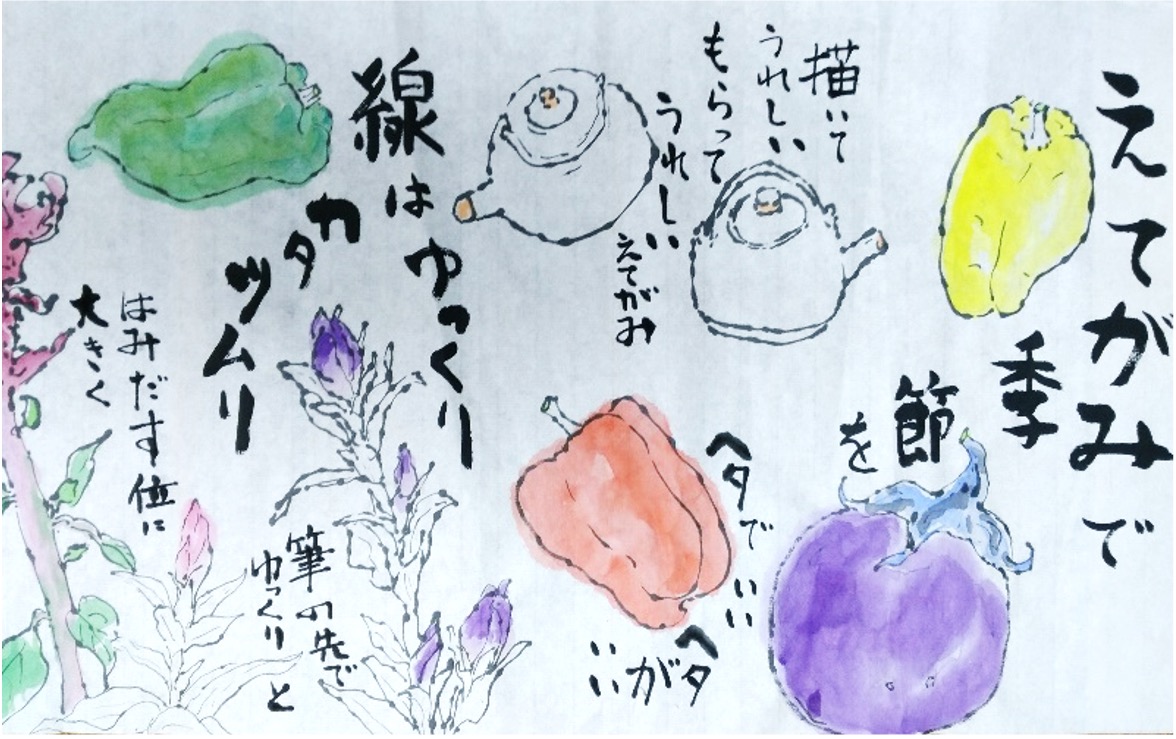 えてがみで
季節を
描いて
うれしい
もらって
うれしい
えてがみ
ヘタでいい
ヘタがいい
線はゆっくり
カタツムリ
筆の先で
ゆっくりと
はみだす位に
大きく